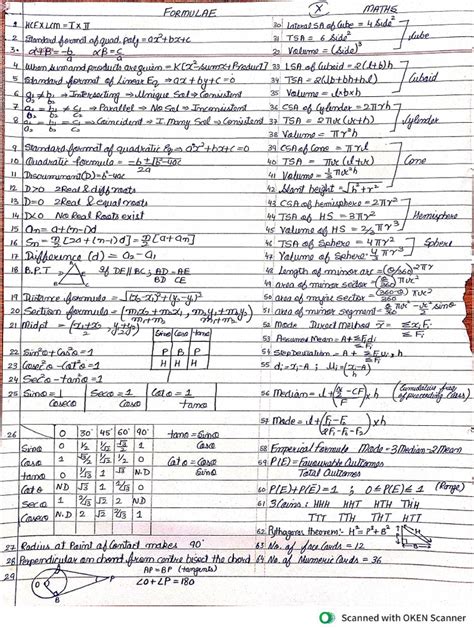 FORMULAE
X
MATHS
1 HCF x LCM = I x II
2 Standard form of quad. poly = ax²+bx+c
3. α+β = -b/a αβ = c/a
4 When sum and product are given = K[x²-sumx+Product]
5 Standard form of Linear Eqn = ax+by+c=0
6 a₁/a₂ ≠ b₁/b₂ → Intersecting → Unique Sol → Consistent
7 a₁/a₂ = b₁/b₂ ≠ c₁/c₂ → Parallel → No Sol → Inconsistent
8 a₁/a₂ = b₁/b₂ = c₁/c₂ → Coincident → Many Sol → Consistent
9 Standard format of quadratic Eq → ax²+bx+c=0
10 Quadratic formula = -b±√b²-4ac/2a
11 Discriminant (D) = b²-4ac
12 D>0 2 Real & diff roots
13 D=0 2 Real & equal roots
14 D<0 No Real Roots exist
15 an = a+(n-1)d
16 Sn = n/2[2a+(n-1)d] = n/2[a+an]
17 Difference (d) = a₂-a₁
18 B.P.T A B C D E If DE||BC; AD/DB = AE/EC
19 Distance formula = √(x₂-x₁)²+(y₂-y₁)²
20 Section formula = (m₁x₂+m₂x₁/m₁+m₂, m₁y₂+m₂y₁/m₁+m₂)
21 Midpt = (x₁+x₂/2, y₁+y₂/2)
Sinθ Cosθ tanθ
P B P
H H B
22 Sin²θ+Cos²θ=1
23 Cosec²θ-Cot²θ=1
24 Sec²θ-tan²θ=1
25 Sinθ = 1/Cosecθ Secθ = 1/Cosθ Cotθ = 1/tanθ
26 0 30° 45° 60° 90°
Sinθ 0 1/2 1/√2 √3/2 1
Cosθ 1 √3/2 1/√2 1/2 0
Tanθ 0 1/√3 1 √3 N.D
Cotθ N.D √3 1 1/√3 0
Secθ 1 2/√3 √2 2 N.D
Cosecθ N.D 2 √2 2/√3 1
tanθ = Sinθ/Cosθ
Cotθ = Cosθ/Sinθ
27 Radius at Point of Contact makes 90°
28 Perpendicular on chord from centre bisect the chord
29 O A B P AP = BP (tangents)
∠O+∠P=180
30 Lateral SA of Cube = 4 Side²
31 TSA = 6 Side²
32 Volume = (Side)³
Cube
33 LSA of Cuboid = 2(l+b)h
34 TSA = 2(lb+bh+hl)
35 Volume = lxbxh
Cuboid
36 CSA of Cylinder = 2πrh
37 TSA = 2πr(r+h)
38 Volume = πr²h
Cylinder
39 CSA of Cone = πrl
40 TSA = πr(l+r)
41 Volume = 1/3πr²h
42 Slant height = √h²+r²
Cone
43 CSA of hemisphere = 2πr²
44 TSA of HS = 3πr²
45 Volume of HS = 2/3πr³
Hemisphere
46 TSA of Sphere = 4πr²
47 Volume of Sphere 4/3πr³
Sphere
48 length of minor arc = (θ/360)2πr
49 area of minor sector = (θ/360)πr²
50 area of major sector = (360-θ/360)πr²
51 area of minor segment = θ/360πr² - r²/2 sinθ
52 Mode Direct Method x̄ = ΣxiFi/ΣFi
53 Assumed Mean = A+ΣFidi/ΣFi
54 Step Deviation = A+ΣFiui/ΣFi xh
55 di = xi-A; Ui = (xi-A/h)
56 Median = l+(n/2-CF/F)xh (Cumulative freq of preceding class)
57 Mode = l+(F₁-F₀/2F₁-F₀-F₂)xh
58 Emperical Formula Mode = 3Median-2Mean
59 P(E) = Favourable Outcomes/Total Outcomes
60 P(E)+P(E̅)=1; 0≤P(E)≤1 (Range)
61 3 Coins: HHH HHT HTH THH
TTT TTH THT HTT
62 Pythagoras theorem:- H²=P²+B²
63 No. of face cards = 12
64 No. of Numeric Cards = 36
Scanned with OKEN Scanner